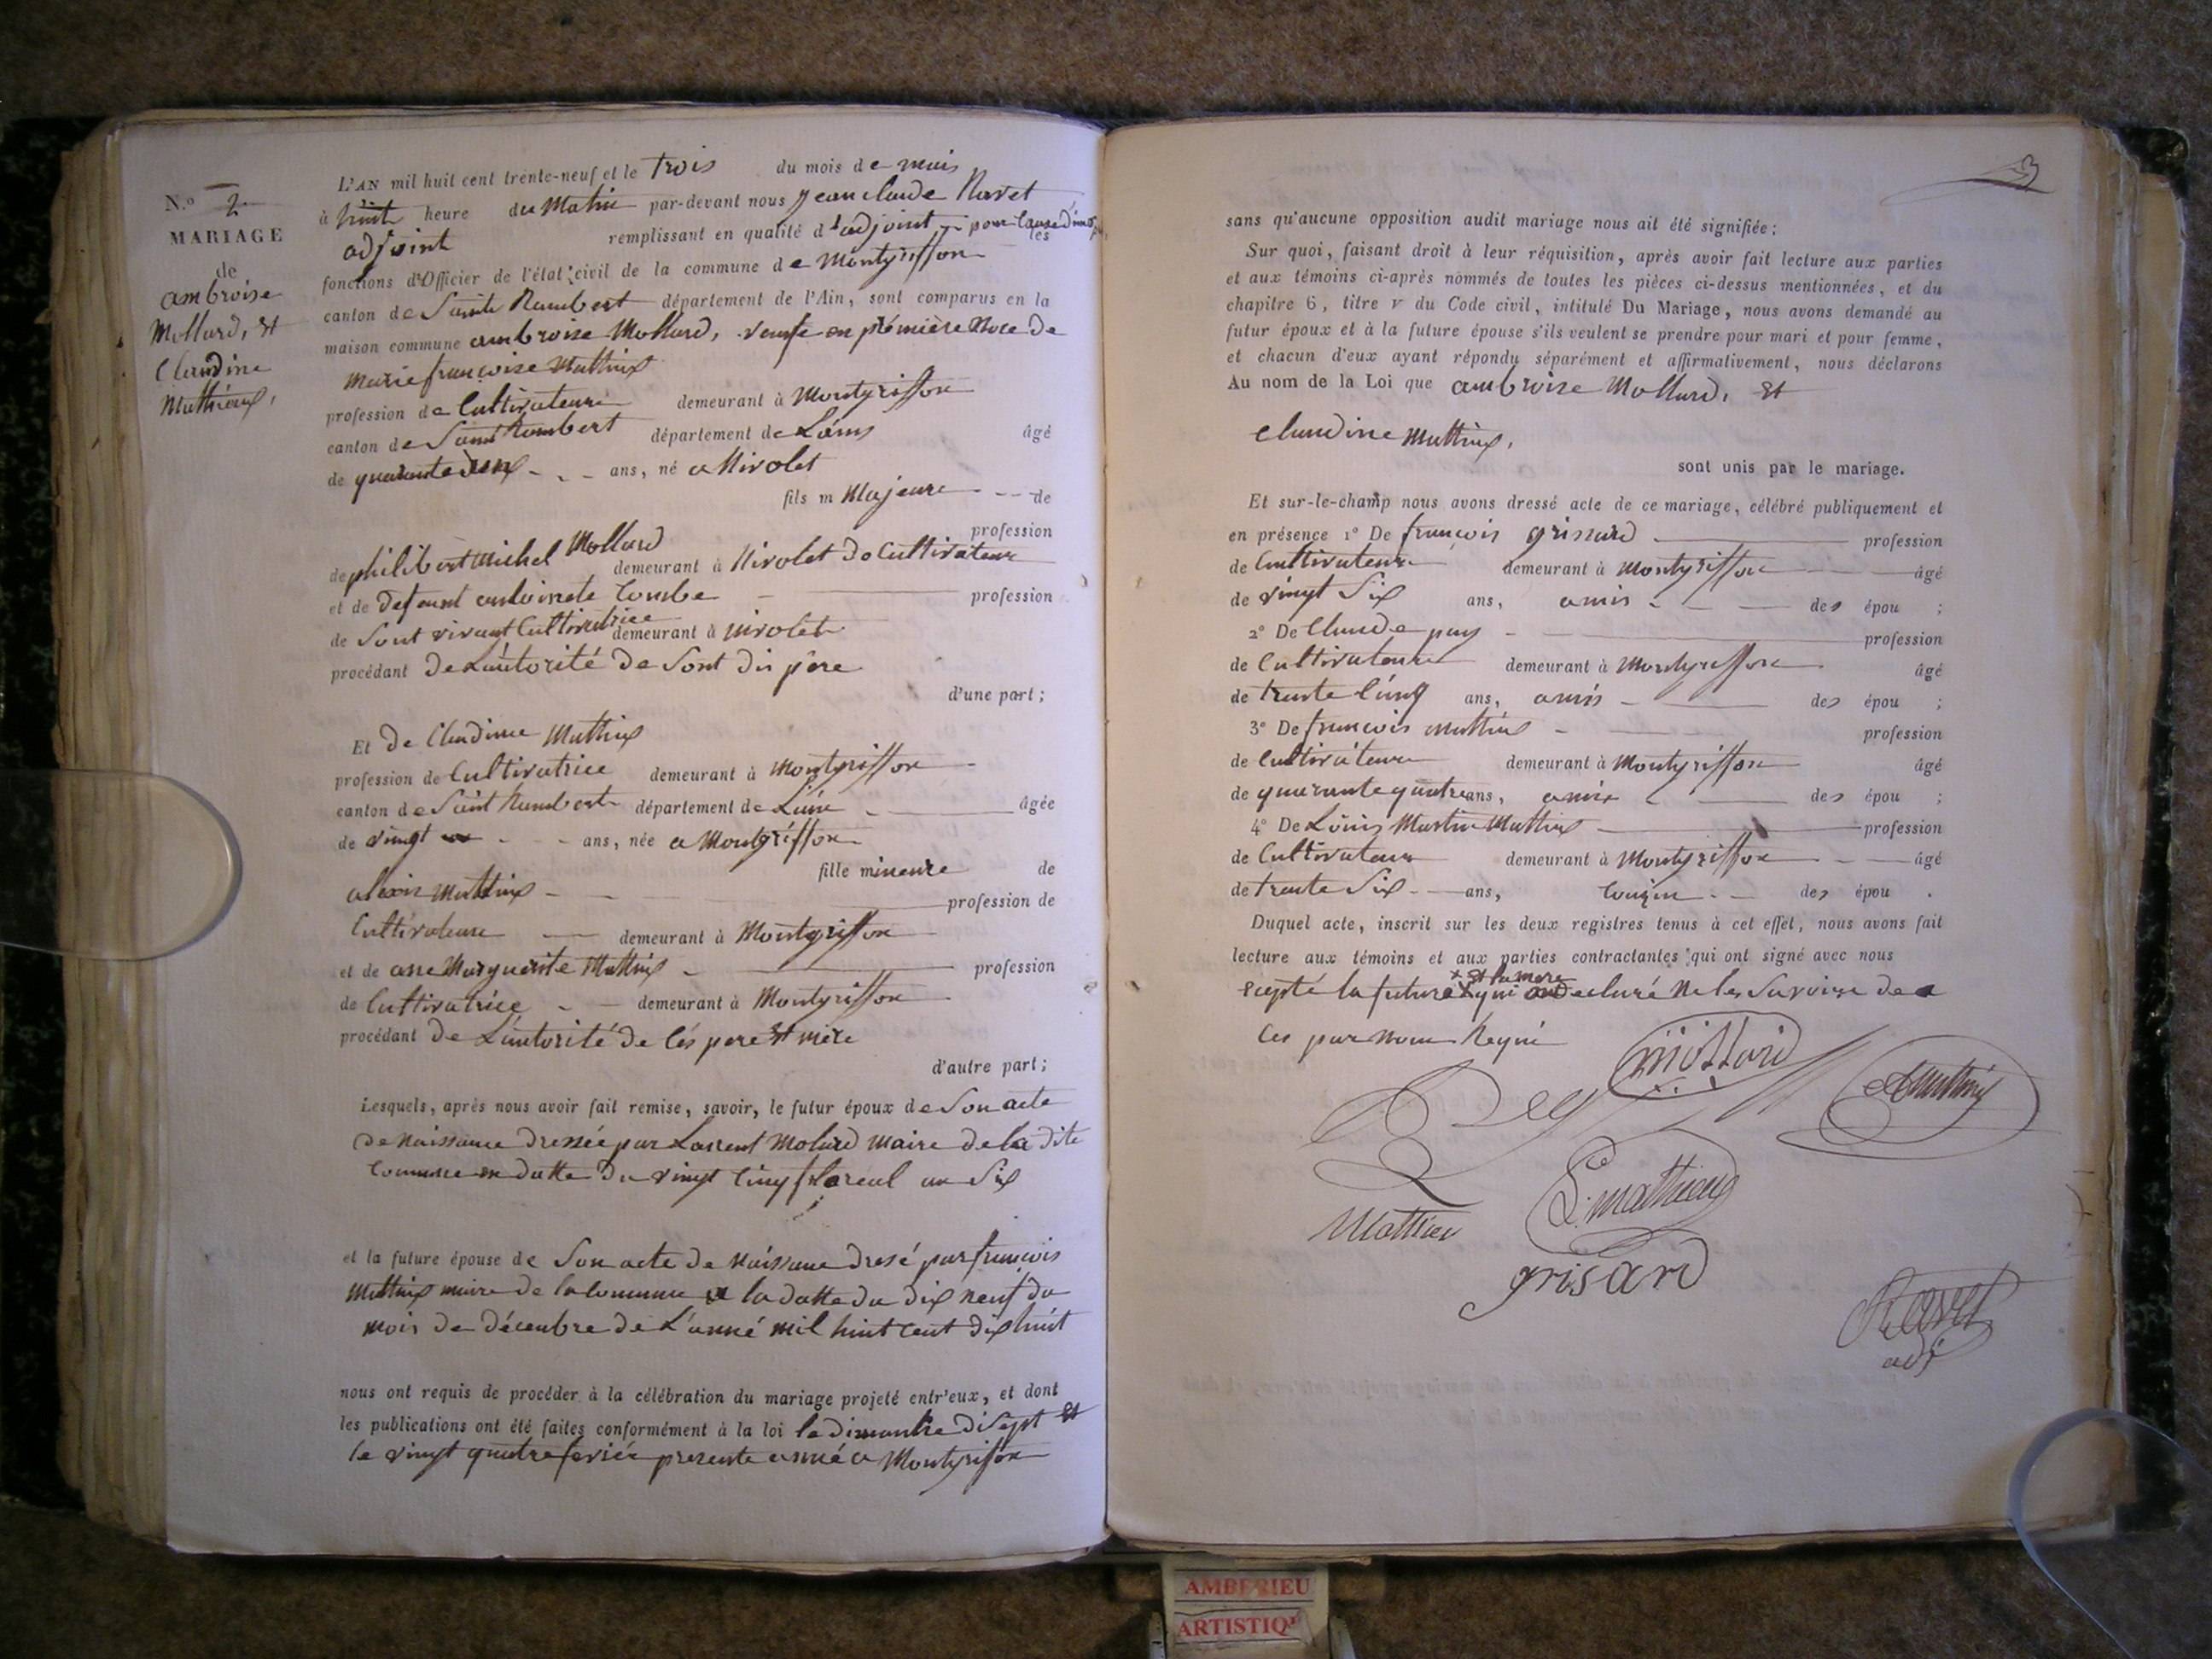 N.o 2
MARIAGE
de
ambroise
Mollard, Et
Claudine
Mathieux,
L'AN mil huit cent trente-neuf et le trois du mois de mars
à huit heure du Matin par-devant nous Jean claude Ravet
adjoint remplissant en qualité d'adjoint pour cause les
fonctions d'Officier de l'état civil de la commune de Montgriffon
canton de Saint Rambert département de l'Ain, sont comparus en la
maison commune ambroise Mollard, veuf en première Noce de
Marie françoise Mathieux
profession de Cultivateur demeurant à Montgriffon
canton de Saint Rambert département de Lains âgé
de quarante deux ans, né a Nivolet
fils m Majeure de
profession
de philibert Michel Mollard demeurant à Nivolet do Cultivateur
et de defeunt antoinete Combe profession
de Sont vivant Cultivatrice demeurant à nivolet
procédant de Lautorité de Sont dis père
d'une part;
Et de Claudine Mathieux
profession de Cultivatrice demeurant à Montgriffon
canton de Saint Rambert département de Lain âgée
de vingt ans, née a Montgriffon
fille mineure de
alexis Mathieux profession de
Cultivateur demeurant à Montgriffon
et de anne Marguerite Mathieux profession
de Cultivatrice demeurant à Montgriffon
procédant de Lautorité de Cés pere Et mère
d'autre part;
Lesquels, après nous avoir fait remise, savoir, le futur époux de Son acte
de Naissance dressée par Laurent Molard Maire de la dite
Commune en datte du vingt Cinq floreal an Six
et la future épouse de Son acte de Naissance dresé par françois
Mathieux maire de la Commune a la datte du dix neuf du
mois de décembre de L'anné mil huit cent dix huit
nous ont requis de procéder à la célébration du mariage projeté entr'eux, et dont
les publications ont été faites conformément à la loi le dimanche disept Et
le vingt quatre fevrier presente anné a Montgriffon
3
sans qu'aucune opposition audit mariage nous ait été signifiée;
Sur quoi, faisant droit à leur réquisition, après avoir fait lecture aux parties
et aux témoins ci-après nommés de toutes les pièces ci-dessus mentionnées, et du
chapitre 6, titre v du Code civil, intitulé Du Mariage, nous avons demandé au
futur époux et à la future épouse s'ils veulent se prendre pour mari et pour femme,
et chacun d'eux ayant répondu séparément et affirmativement, nous déclarons
Au nom de la Loi que ambroise Mollard, Et
claudine Mathieux,
sont unis par le mariage.
Et sur-le-champ nous avons dressé acte de ce mariage, célébré publiquement et
en présence 1o De françois grissard profession
de Cultivateur demeurant à Montgriffon âgé
de vingt Six ans, amis des épou ;
2o De Claude puy profession
de Cultivateur demeurant à Montgriffon âgé
de trente Cinq ans, amis des épou ;
3o De françois Mathieux profession
de Cultivateur demeurant à Montgriffon âgé
de quarante quatre ans, amis des épou ;
4o De Louis Martin Mathieux profession
de Cultivateur demeurant à Montgriffon âgé
de trente Six ans, Couzin des épou .
Duquel acte, inscrit sur les deux registres tenus à cet effet, nous avons fait
lecture aux témoins et aux parties contractantes qui ont signé avec nous
+ Et la mere
Septé la future + qui declaré Ne les Savoire de
Ces par nous Requi
mollard
Mathieu
L. mathieux
grisard
Ravet
adj
AMBERIEU
ARTISTIQ